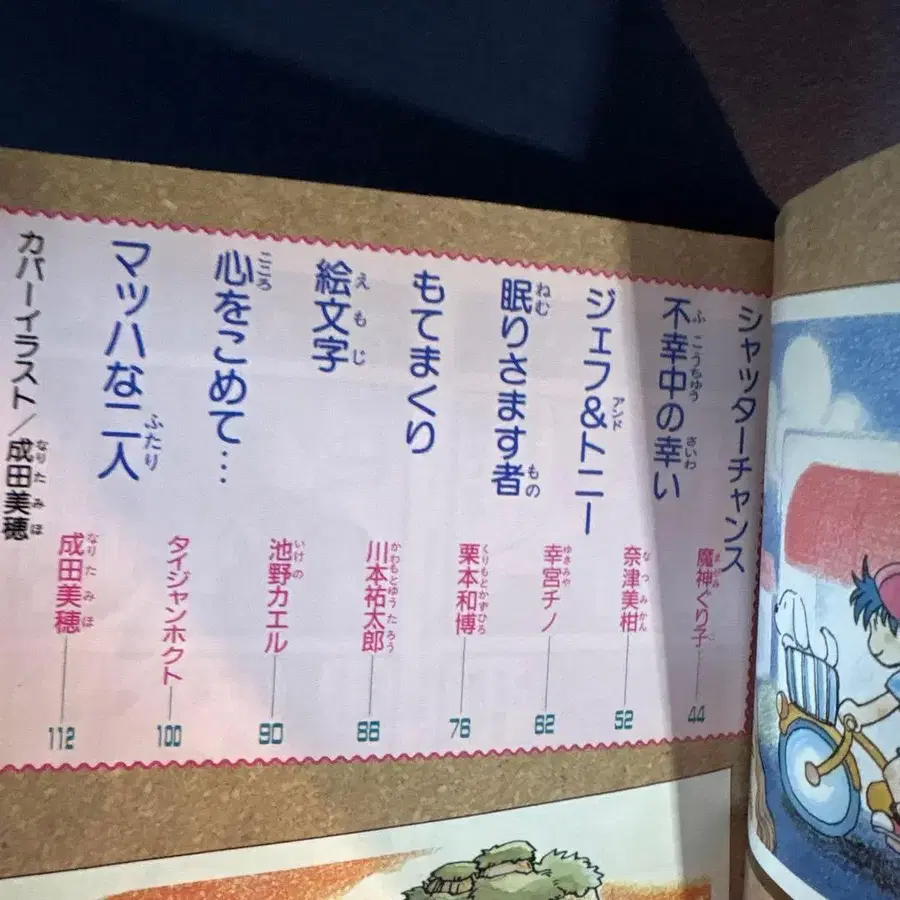 シャッターチャンス
魔神ぐり子 44
不幸中の幸い
奈津美柑 52
ジェフ&トニー
幸宮チノ 62
眠りさます者
栗本和博 76
もてまくり
川本祐太郎 88
絵文字
池野カエル 90
心をこめて…
タイジャンホクト 100
マッハな二人
成田美穂 112
カバーイラスト/成田美穂